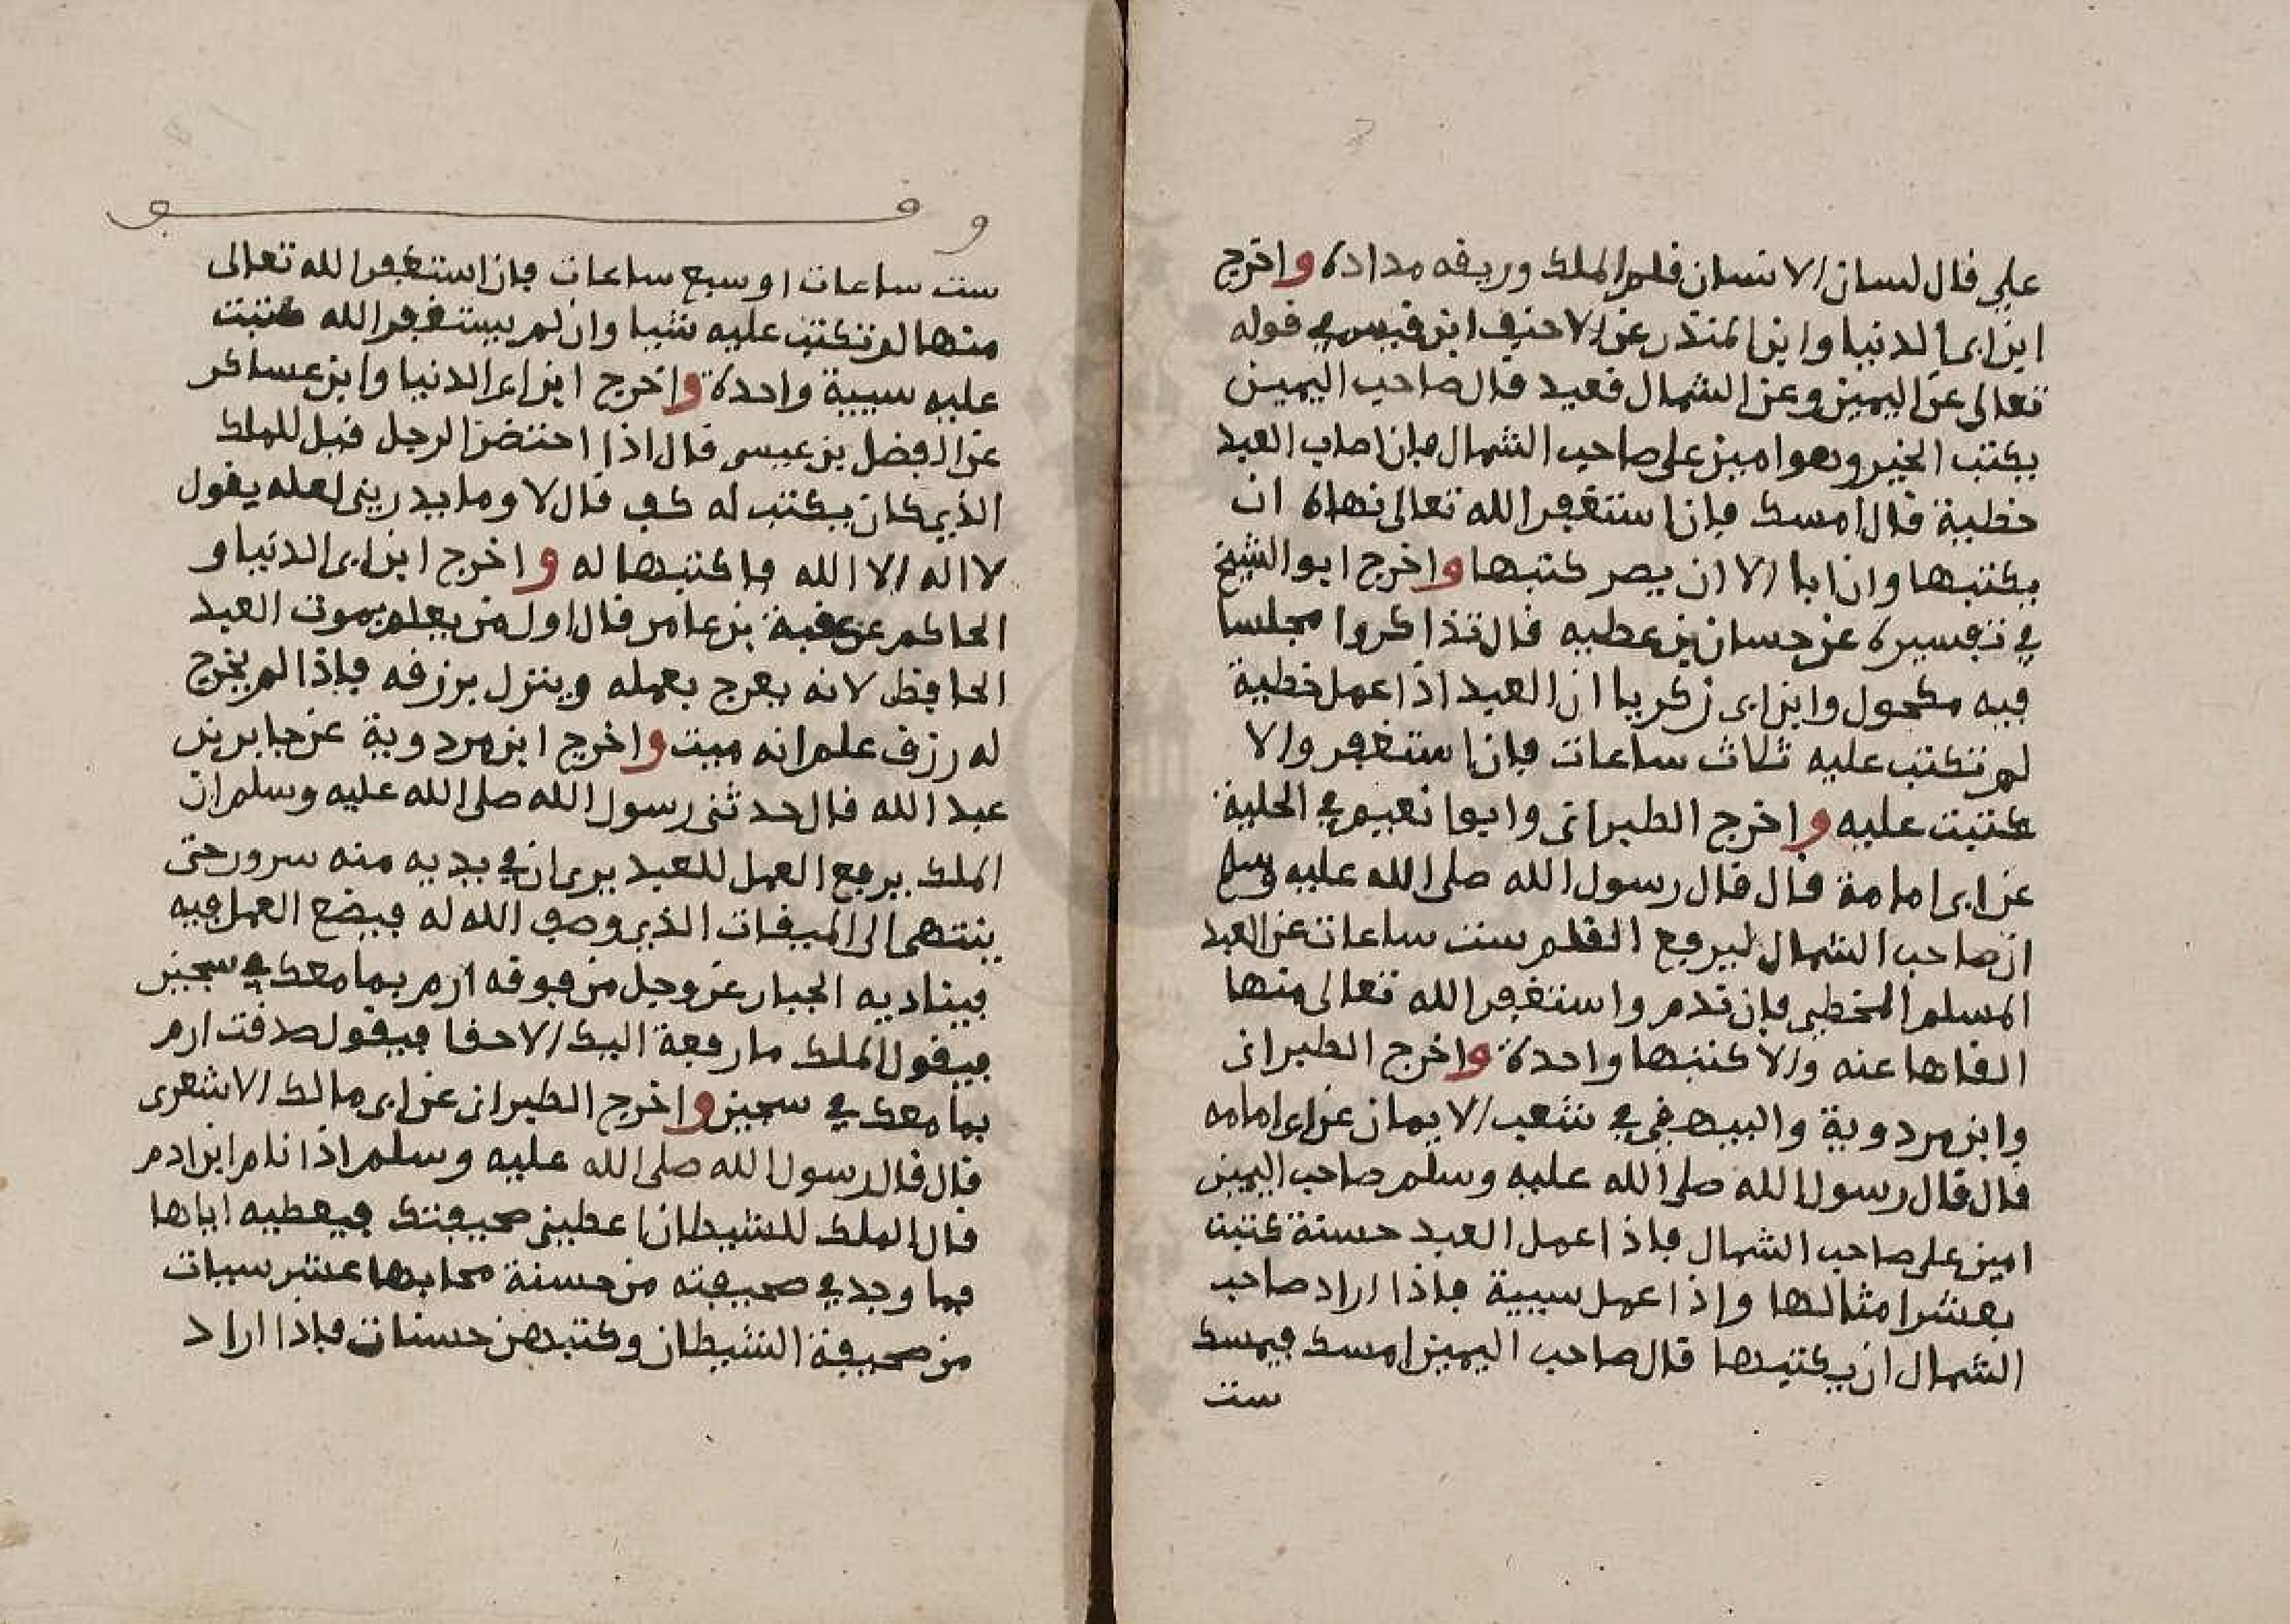 علي قال لسان الانسان قلم الملك وريقه مداده واخرج
ابن ابي الدنيا وابن المنذر عن الاحنف ابن قيس في قوله
تعالى عن اليمين وعن الشمال قعيد قال صاحب اليمين
يكتب الخير وهو امين على صاحب الشمال فان اصاب العبد
خطية قال امسك فان استغفر الله تعالى نهاه ان
يكتبها وان ابا الا ان يصر كتبها واخرج ابو الشيخ
في تفسيره عن حسان بن عطيه قال تذاكروا مجلسا
فيه مكحول وابن ابي زكريا ان العبد اذا عمل خطية
لم تكتب عليه ثلاث ساعات فان استغفر والا
كتبت عليه واخرج الطبراني وابوا نعيم في الحلية
عن ابي امامة قال قال رسول الله صلى الله عليه وسلم
ان صاحب الشمال ليرفع القلم ست ساعات عن العبد
المسلم المخطي فان ندم واستغفر الله تعالى منها
القاها عنه والا كتبها واحدة واخرج الطبراني
وابن مردوية والبيهقي في شعب الايمان عن ابي امامه
قال قال رسول الله صلى الله عليه وسلم صاحب اليمين
امين على صاحب الشمال فاذا عمل العبد حسنة كتبت
بعشر امثالها واذا عمل سيية فاذا اراد صاحب
الشمال ان يكتبها قال صاحب اليمين امسك فيمسك
ست
وقف
ست ساعات او سبع ساعات فان استغفر الله تعالى
منها لم تكتب عليه شيا وان لم يستغفر الله كتبت
عليه سيية واحدة واخرج ابن ابي الدنيا وابن عساكر
عن الفضل بن عيسى قال اذا احتضر الرجل قيل للملك
الذي كان يكتب له كف قال لا وما يدريني لعله يقول
لا اله الا الله فاكتبها له واخرج ابن ابي الدنيا و
الحاكم عن عقبة بن عامر قال اول من يعلم بموت العبد
الحافظ لانه يعرج بعمله وينزل برزقه فاذا لم يخرج
له رزق علم انه ميت واخرج ابن مردوية عن جابر بن
عبد الله قال حدثني رسول الله صلى الله عليه وسلم ان
الملك يرفع العمل للعبد يرى ان في يديه منه سرور حتى
ينتهي الى الميقات الذي وصف الله له فيضع العمل فيه
فيناديه الجبار عز وجل من فوقه ارم بما معك في سجين
فيقول الملك ما رفعة اليك الا حقا فيقول صدقت ارم
بما معك في سجين واخرج الطبراني عن ابي مالك الاشعرى
قال قال رسول الله صلى الله عليه وسلم اذا نام ابن ادم
قال الملك للشيطان اعطيني صحيفتك فيعطيه اياها
فما وجد في صحيفته من حسنة محا بها عشر سيات
من صحيفة الشيطان وكتبهن حسنات فاذا اراد